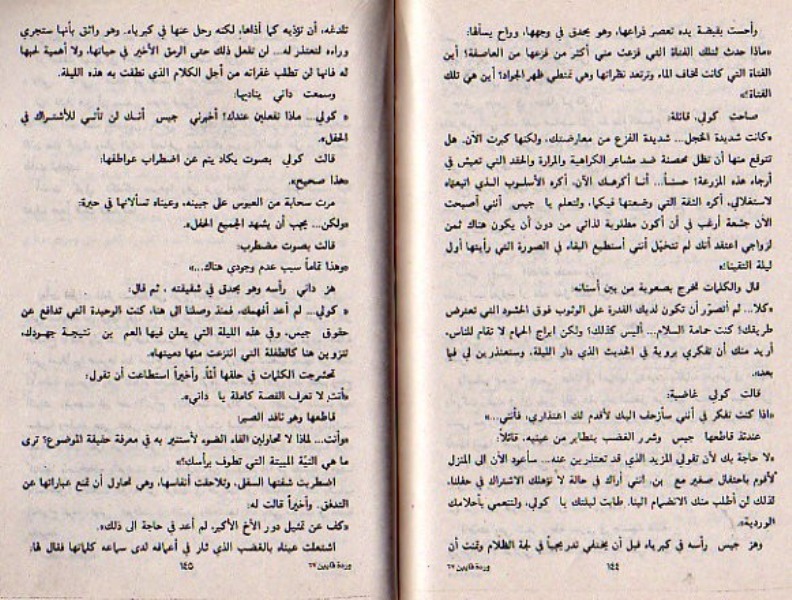 وأحست بقبضة يده تعصر ذراعها، وهو يحدق في وجهها، وراح يسألها:
«ماذا حدث لتلك الفتاة التي فزعت مني أكثر من فزعها من العاصفة؟ أين
الفتاة التي كانت تخاف الماء وترتعد نظراتها وهي تمتطي ظهر الجواد؟ أين هي تلك
الفتاة؟»
صاحت كولي، قائلة:
«كانت شديدة الخجل... شديدة الفزع من معارضتك، ولكنها كبرت الآن. هل
تتوقع منها أن تظل محصنة ضد مشاعر الكراهية والمرارة والحقد التي تعيش في
أرجاء هذه المزرعة؟ حسناً... أنا أكرهك الآن. أكره الأسلوب الذي اتبعته
لاستغلالي. أكره الثقة التي وضعتها فيكما، ولتعلم يا جيس أنني أصبحت
الآن جشعة أرغب في أن أكون مطلوبة لذاتي من دون أن يكون هناك ثمن
لزواجي اعتقد أنك لم تتخيّل أنني أستطيع البقاء في الصورة التي رأيتها أول
ليلة التقينا!»
قال والكلمات تخرج بصعوبة من بين أسنانه:
«كلا... لم أتصوّر أن تكون لديك القدرة على الوثوب فوق الحشود التي تعترض
طريقك! كنت حمامة السلام... أليس كذلك؟ ولكن ابراج الحمام لا تقام للناس.
أريد منك أن تفكري بروية في الحديث الذي دار الليلة، وستعتذرين لي فيما
بعد».
قالت كولي غاضبة:
«اذا كنت تفكر في أنني سأزحف اليك لأقدم لك اعتذاري، فأنني...»
عندئذ قاطعها جيس وشرر الغضب يتطاير من عينيه. قائلاً:
«لا حاجة بك لأن تقولي المزيد الذي قد تعتذرين عنه... سأعود الآن الى المنزل
لأقوم باحتفال صغير مع بن. انني أراك في حالة لا تؤهلك الاشتراك في حفلنا،
لذلك لن أطلب منك الانضمام الينا. طابت ليلتك يا كولي، ولتنعمي بأحلامك
الوردية».
وهز جيس رأسه في كبرياء قبل أن يختفي تدريجياً في لجة الظلام وتمنت أن
١٤٤
وردة قايين ٦٧
تلدغه، أن تؤذيه كما أذاها، لكنه رحل عنها في كبرياء. وهو واثق بأنها ستجري
وراءه لتعتذر له... لن تفعل ذلك حتى الرمق الأخير في حياتها، ولا أهمية لحبها
له فانها لن تطلب غفرانه من أجل الكلام الذي نطقت به هذه الليلة.
وسمعت داني يناديها:
« كولي... ماذا تفعلين عندك؟ أخبرني جيس أنك لن تأتي للأشتراك في
الحفل».
قالت كولي بصوت يكاد ينم عن اضطراب عواطفها:
«هذا صحيح».
مرت سحابة من العبوس على جبينه، وعيناه تسألانها في حيرة:
«ولكن... يجب أن يشهد الجميع الحفل».
قالت بصوت مضطرب:
«وهذا تماماً سبب عدم وجودي هناك...»
هز داني رأسه وهو يحدق في شقيقته ، ثم قال:
« كولي... لم أعد أفهمك. فمنذ وصلنا الى هنا، كنت الوحيدة التي تدافع عن
حقوق جيس، وفي هذه الليلة التي يعلن فيها العم بن نتيجة جهودك،
تنزوين هنا كالطفلة التي انتزعت منها دميتها».
تحشرجت الكلمات في حلقها ألماً. وأخيراً استطاعت أن تقول:
«أنت لا تعرف القصة كاملة يا داني».
قاطعها وهو نافد الصبر:
«وأنت... لماذا لا تحاولين القاء الضوء لأستنير به في معرفة حقيقة الموضوع؟ ترى
ما هي النيّة المبيتة التي تطوف برأسك؟»
اضطربت شفتها السفلى، وتلاحقت أنفاسها، وهي تحاول أن تمنع عباراتها عن
التدفق. وأخيراً قالت له:
«كف عن تمثيل دور الأخ الأكبر. لم أعد في حاجة الى ذلك».
اشتعلت عيناه بالغضب الذي ثار في أعماقه لدى سماعه كلماتها فقال لها:
١٤٥
وردة قايين ٦٧